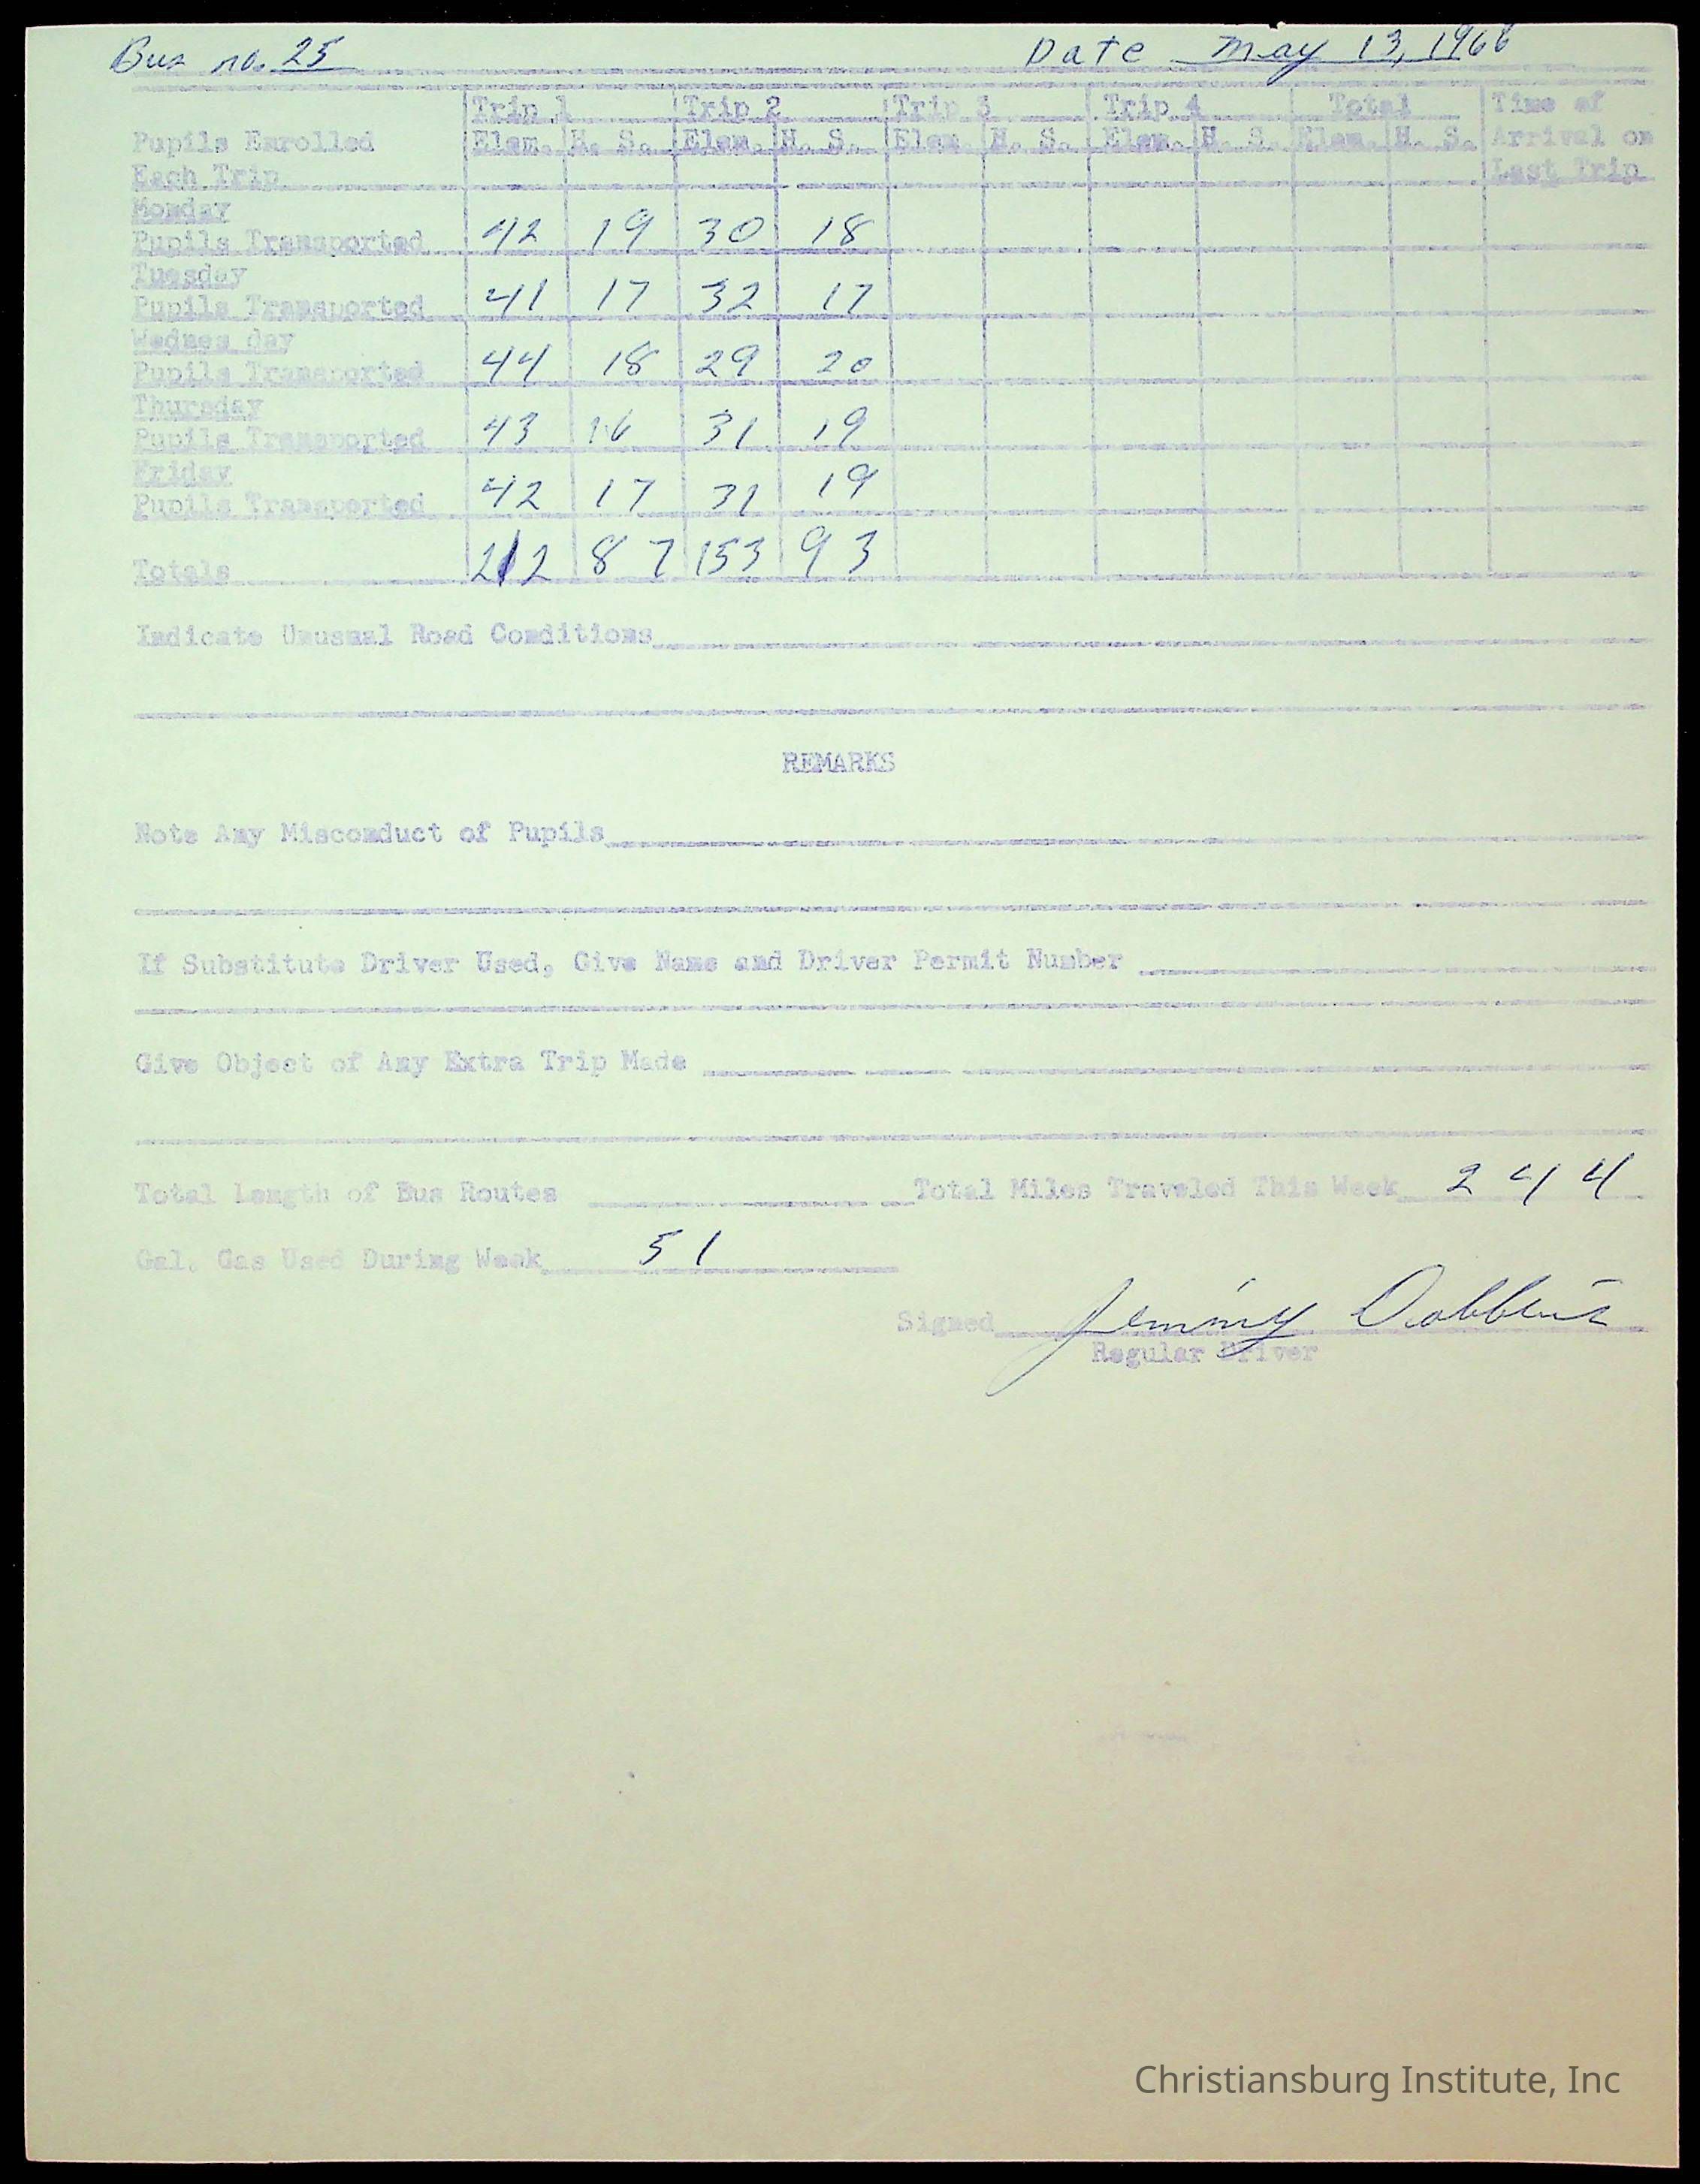 Bus no. 25 Date May 13, 1966
Trip 1 Trip 2 Trip 3 Trip 4 Total Time of
Pupils Enrolled Elem. H. S. Elem. H. S. Elem. H. S. Elem. H. S. Elem. H. S. Arrival on
Each Trip Last Trip
Monday
Pupils Transported 42 19 30 18
Tuesday
Pupils Transported 41 17 32 17
Wednes day
Pupils Transported 44 18 29 20
Thursday
Pupils Transported 43 16 31 19
Friday
Pupils Transported 42 17 31 19
Totals 212 87 153 93
Indicate Unusual Road Conditions
REMARKS
Note Any Misconduct of Pupils
If Substitute Driver Used, Give Name and Driver Permit Number
Give Object of Any Extra Trip Made
Total Length of Bus Routes Total Miles Traveled This Week 244
Gal. Gas Used During Week 51
Signed Jimmy Dobbins
Regular Driver
Christiansburg Institute, Inc